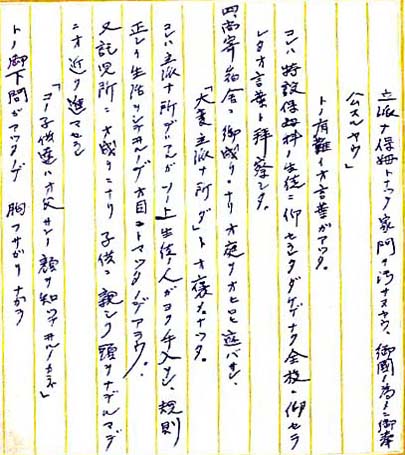 立派ナ保姆トナッテ家門ヲ汚サヌヤウ、御國ノ為ニ御奉
公スルヤウ」
トノ有難イオ言葉ガアッタ。
コレハ特設保姆科ノ生徒ニ仰セラレタダケデナク全校ニ仰セラ
レタオ言葉ト拝察シタ。
四尚寄宿舎ニ御成リニナリオ庭ヲオヒロヒ遊バサレ
「大変立派ナ所ダ」トオ褒メナッタ。
コレハ立派ナ所デハアルガソノ上生徒ノ人ガヨク手入シ、規則
正シイ生活ヲシテヰルノデオ目ニトマッタノデアラウ。
又託児所ニオ成リニナリ子供ニ親シク頭ヲナデルマデ
ニオ近ク進マセラレ
「コノ子供達ハオ父サンノ顔ヲ知ッテヰルノカネ」
トノ御下問ガアッタノデ胸フサガリナガラ